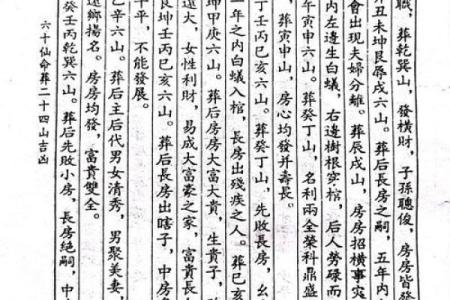 職，葬乾巽山，發橫財，子孫聰俊，房房皆發
丑未坤艮辰戌六山。葬后長房之嗣，五年內
會出現夫婦分離。葬辰戌山，房房招橫事灾
內左邊生白蟻，右邊樹根穿棺，后人勞碌而
午寅申六山。葬癸丁山，名利兩全榮科鼎盛
，葬寅申山，房心均發并壽長。
丁壬丙巳亥六山。葬癸丁山，先敗長房，幺
一年之內白蟻入棺，長房出殘疾之人。葬巳亥
坤甲庚六山。葬后房房大富大貴，生貴子，
遠大，女性利財，易成大富豪之家，富貴長
艮坤壬丙巳亥六山。葬后長房出瞎子，中房
平平，不能發展。
乙辛六山。葬后主后代男女清秀，男聚美妻，
還鄉揚名。房房均發，富貴雙全。
癸壬丙乾巽六山。葬后先敗小房，長房絕嗣，中
六十仙命葬二十四山吉凶